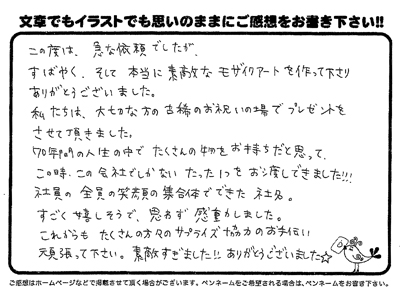 文章でもイラストでも思いのままにご感想をお書き下さい!!
この度は、急な依頼でしたが、
すばやく、そして本当に素敵なモザイクアートを作って下さり
ありがとうございました。
私たちは、大切な方の古稀のお祝いの場でプレゼントを
させて頂きました。
70年間の人生の中でたくさんの物をお持ちだと思って、
この時、この会社でしかない たった1つをお渡しできました!!!
社員の全員の笑顔の集合体でできた 社名。
すごく嬉しそうで、思わず感動しました。
これからも たくさんの方々のサプライズ協力のお手伝い
頑張って下さい。素敵すぎました!! ありがとうございました☆
ご感想はホームページなどで掲載させて頂く場合がございます。ペンネームをご希望される場合は、ペンネームをお書き下さい。